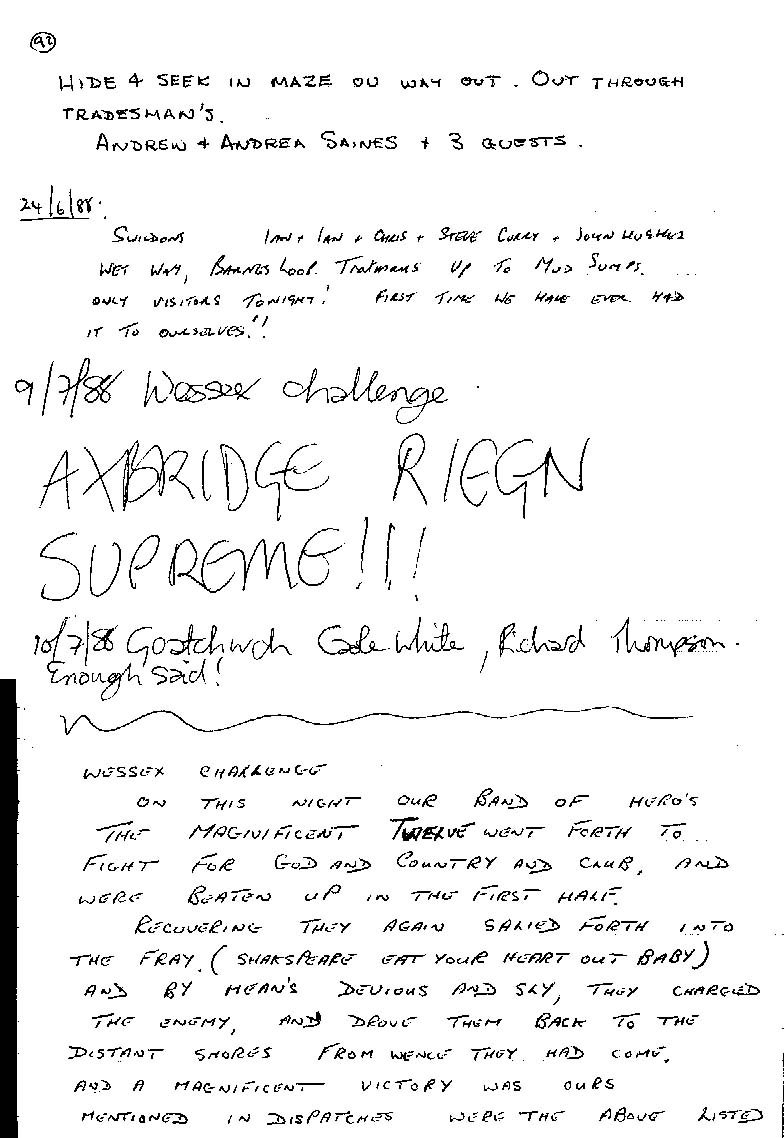 92
HIDE & SEEK IN MAZE ON WAY OUT. OUT THROUGH
TRADESMAN'S.
ANDREW + ANDREA SAINES + 3 GUESTS.
24/6/88.
SWILDONS IAN + IAN + CHRIS + STEVE CURRY + JOHN HUGHES
WET WAY, BARNES LOOP. TRATMANS UP TO MUD SUMPS.
ONLY VISITORS TONIGHT! FIRST TIME WE HAVE EVER HAD
IT TO OURSELVES!!
9/7/88 Wessex challenge
AXBRIDGE RIEGN
SUPREME!!!
10/7/88 Goatchurch White, Richard Thompson.
Enough said!
WESSEX CHALLENGE
ON THIS NIGHT OUR BAND OF HERO'S
THE MAGNIFICENT TWELVE WENT FORTH TO
FIGHT FOR GOD AND COUNTRY AND CLUB, AND
WERE BEATEN UP IN THE FIRST HALF.
RECOVERING THEY AGAIN SALIED FORTH INTO
THE FRAY. (SHAKSPEARE EAT YOUR HEART OUT BABY)
AND BY MEAN'S DEVIOUS AND SLY, THEY CHARGED
THE ENEMY, AND DROVE THEM BACK TO THE
DISTANT SHORES FROM WENCE THEY HAD COME.
AND A MAGNIFICENT VICTORY WAS OURS
MENTIONED IN DISPATCHES WERE THE ABOVE LISTED